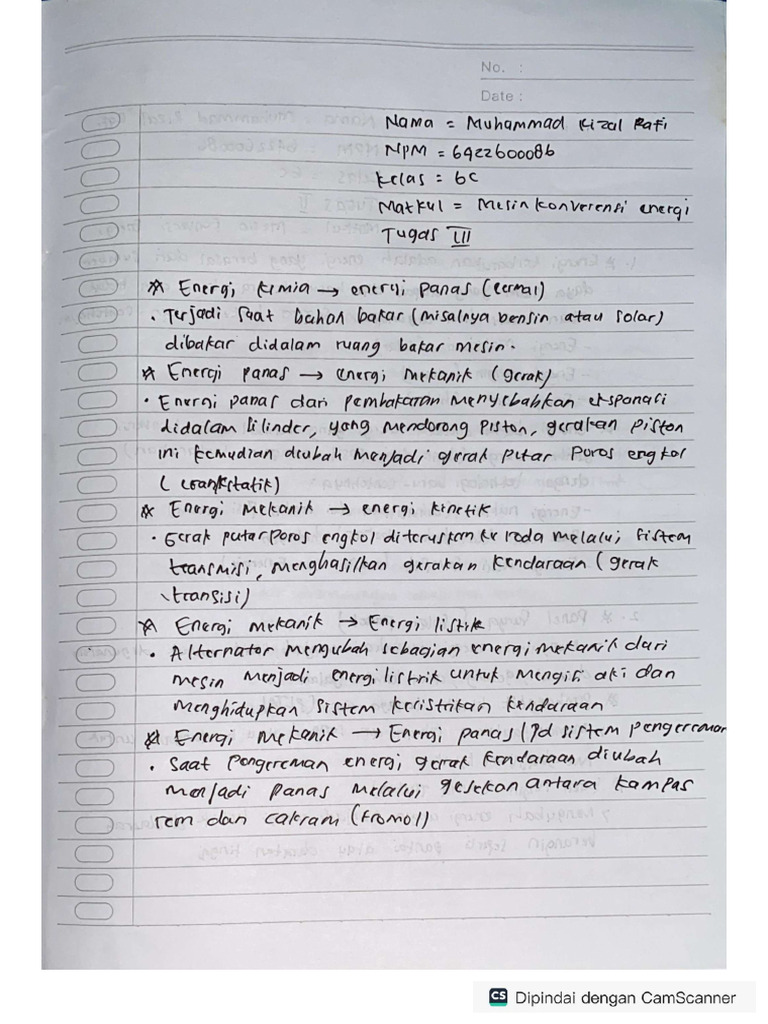 No. :
Date :
Nama = Muhammad Rizal Rafi
NPM = 6422600086
Kelas = 6C
Matkul = Mesin Konverensi energi
Tugas III
☆ Energi kimia → energi panas (termal)
• Terjadi saat bahan bakar (misalnya bensin atau solar)
dibakar didalam ruang bakar mesin.
☆ Energi panas → energi mekanik (gerak)
• Energi panas dari pembakaran menyebabkan ekspansi
didalam silinder, yang mendorong piston, gerakan piston
ini kemudian diubah menjadi gerak putar poros engkol
☆ Energi mekanik → energi kinetik
• Gerak putar poros engkol diteruskan ke roda melalui sistem
transmisi, menghasilkan gerakan kendaraan (gerak
transisi)
☆ Energi mekanik → Energi listrik
• Alternator mengubah sebagian energi mekanik dari
mesin menjadi energi listrik untuk mengisi aki dan
menghidupkan sistem keristrikan kendaraan
☆ Energi mekanik → Energi panas (Pd sistem pengereman
• Saat pengereman energi gerak kendaraan diubah
menjadi panas melalui gesekan antara kampas
rem dan cakram (tromol)
CS Dipindai dengan CamScanner